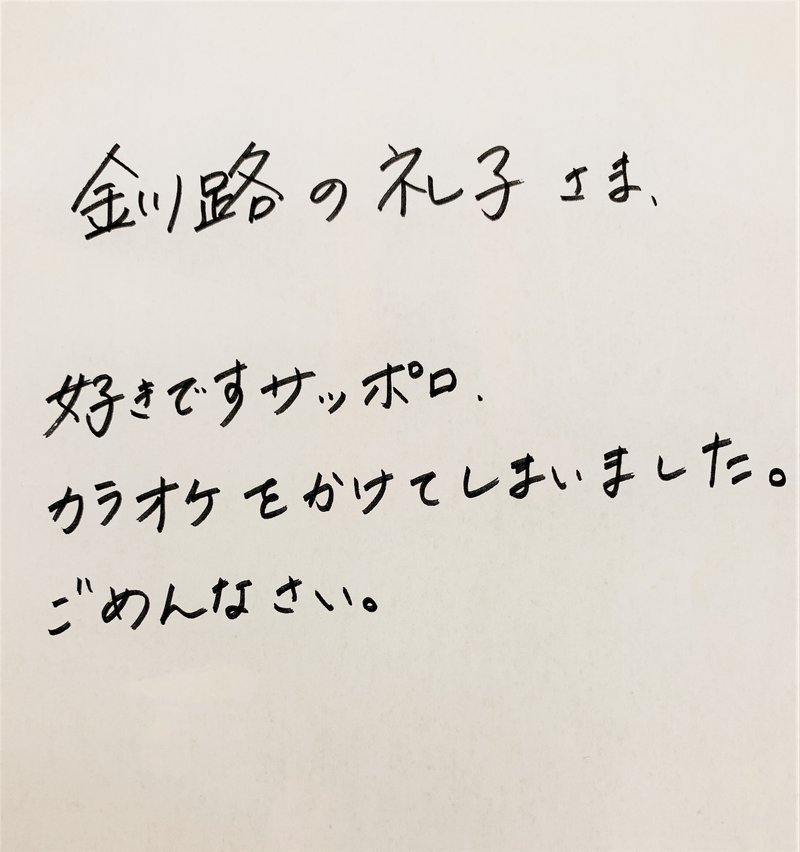 釧路の礼子さま、
好きですサッポロ、
カラオケをかけてしまいました。
ごめんなさい。